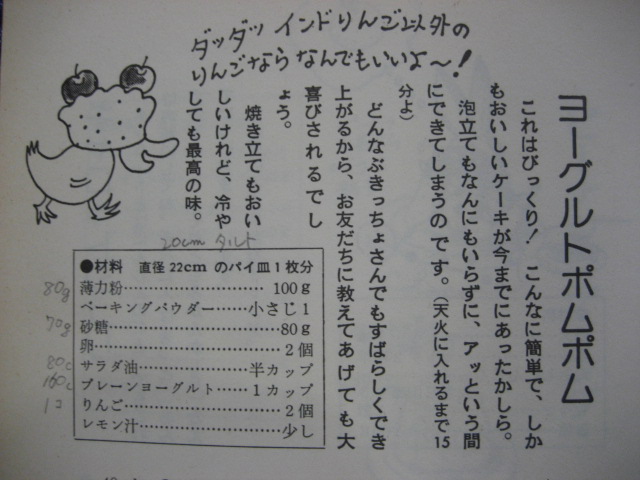 ダッダッ インドりんご以外の
りんごなら なんでもいいよ〜!
ヨーグルトポムポム
これはびっくり! こんなに簡単で、しか
もおいしいケーキが今までにあったかしら。
泡立てもなんにもいらずに、アッという間
にできてしまうのです。(天火に入れるまで15
分よ)
どんなぶきっちょさんでもすばらしくでき
上がるから、お友だちに教えてあげても大
喜びされるでしょう。
焼き立てもおい
しいけれど、冷や
しても最高の味。
20cm タルト
●材料 直径22cm のパイ皿1枚分
80g 薄力粉……………………100g
ベーキングパウダー……小さじ1
70g 砂糖………………………80g
卵…………………………2個
80cc サラダ油………………半カップ
160cc プレーンヨーグルト……1カップ
1コ りんご……………………2個
レモン汁…………………少し